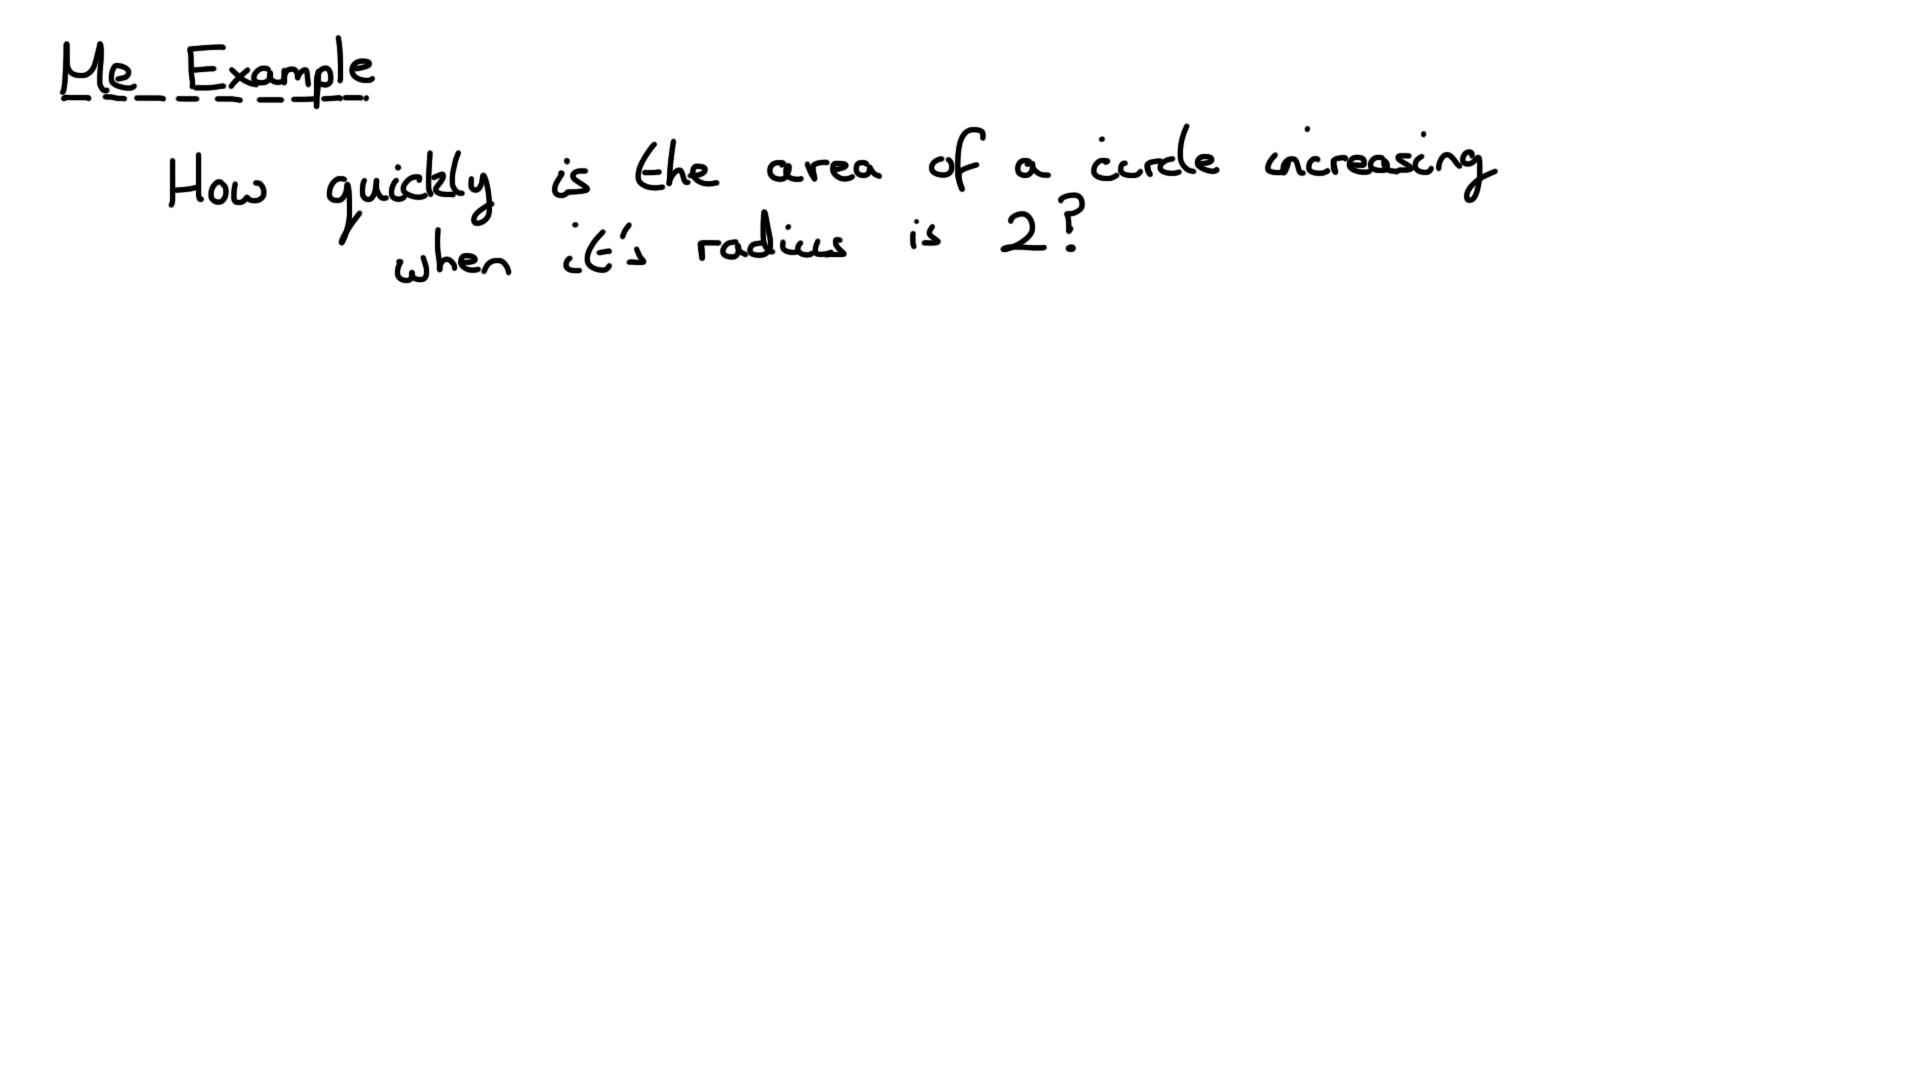 Me Example
How quickly is the area of a circle increasing
when it's radius is 2?